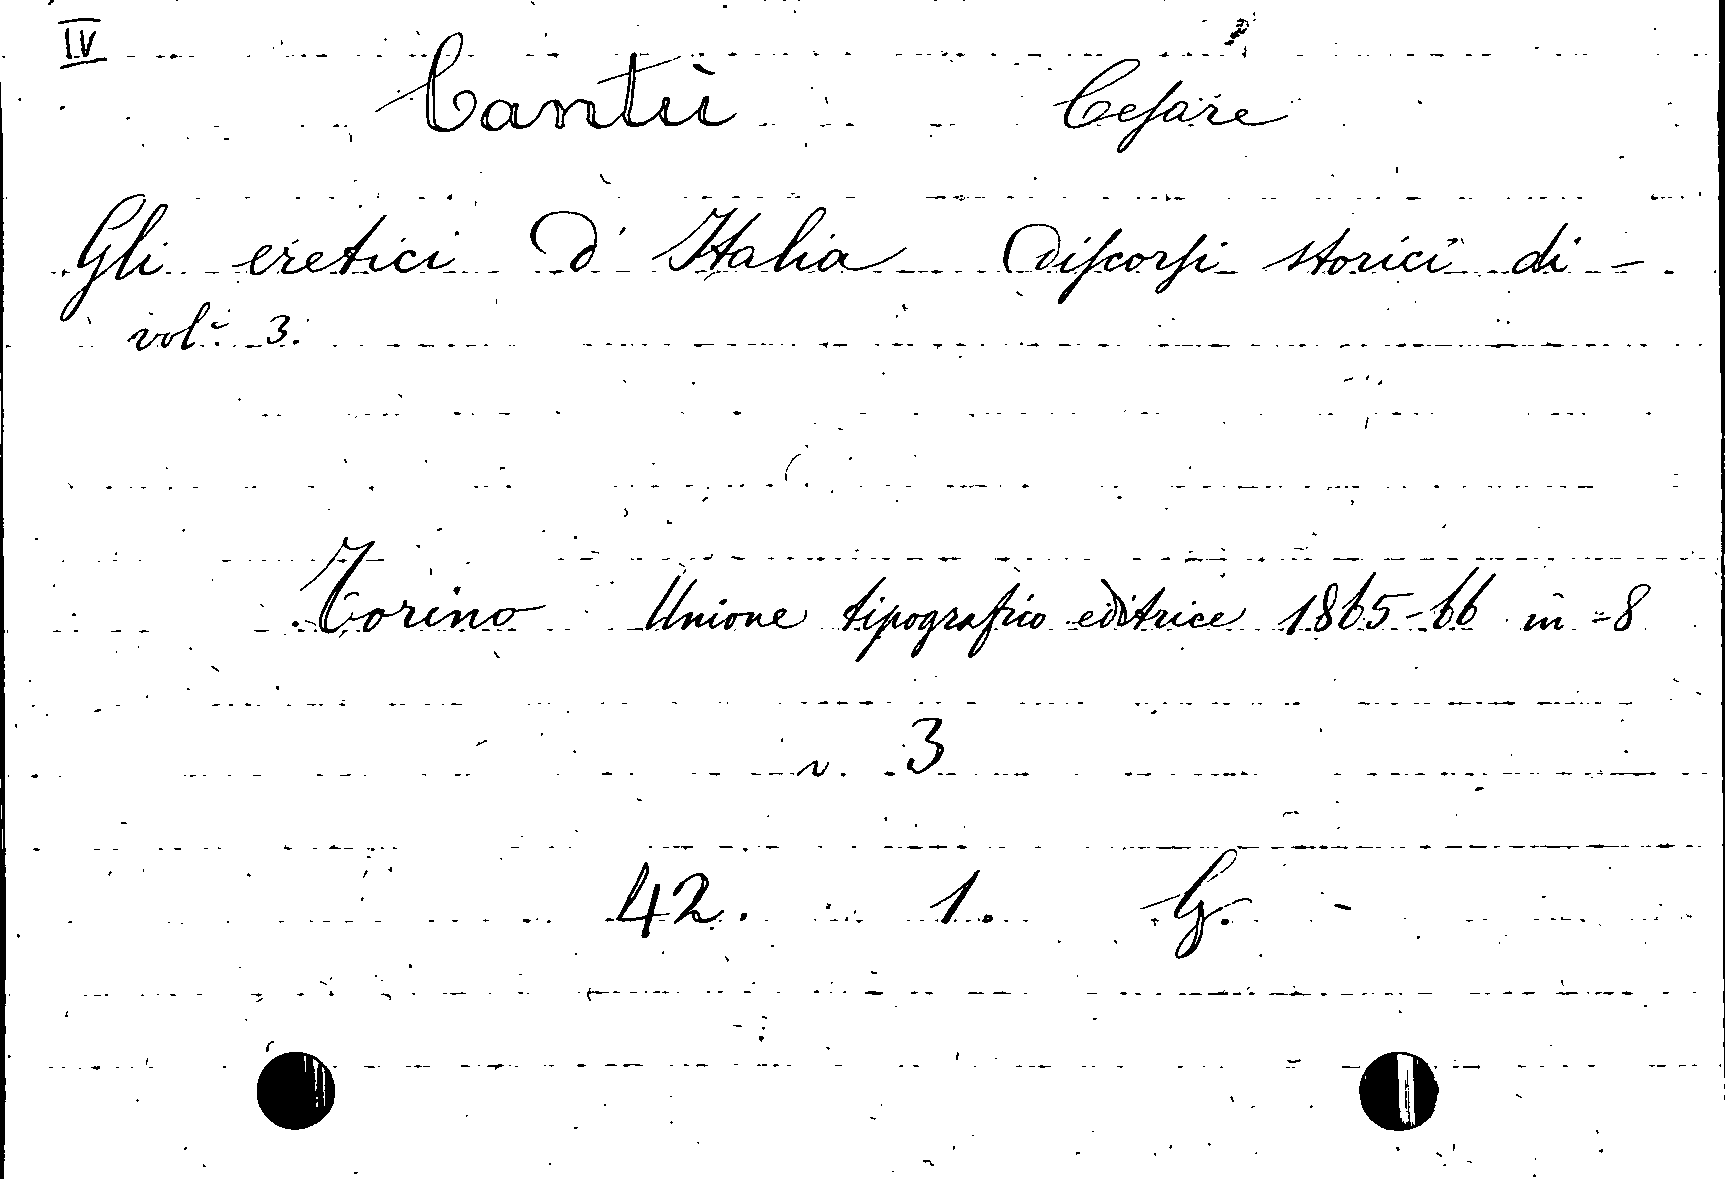 IV
Cantù Cesare
Gli eretici d'Italia Discorsi storici di -
vol. 3.
Torino Unione tipografico editrice 1865-66 in =8
v. 3
42. 1. G. -